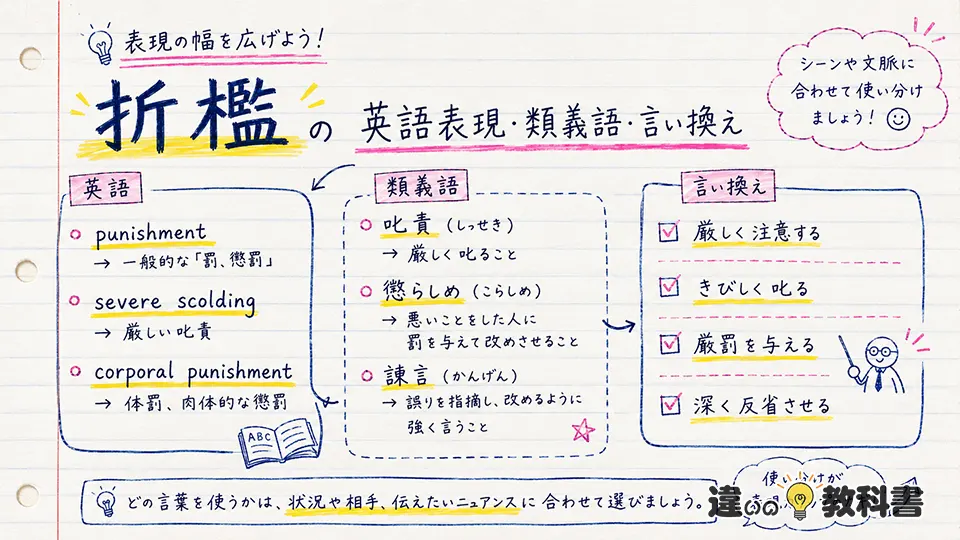 表現の幅を広げよう!
折檻の 英語表現・類義語・言い換え
シーンや文脈に
合わせて使い分け
ましょう!
英語
punishment
→ 一般的な「罰、懲罰」
severe scolding
→ 厳しい叱責
corporal punishment
→ 体罰、肉体的な懲罰
ABC
類義語
叱責(しっせき)
→ 厳しく叱ること
懲らしめ(こらしめ)
→ 悪いことをした人に
罰を与えて改めさせること
諫言(かんげん)
→ 誤りを指摘し、改めるように
強く言うこと
言い換え
厳しく注意する
きびしく叱る
厳罰を与える
深く反省させる
どの言葉を使うかは、状況や相手、伝えたいニュアンスに合わせて選びましょう。
使い分けが
違いの教科書